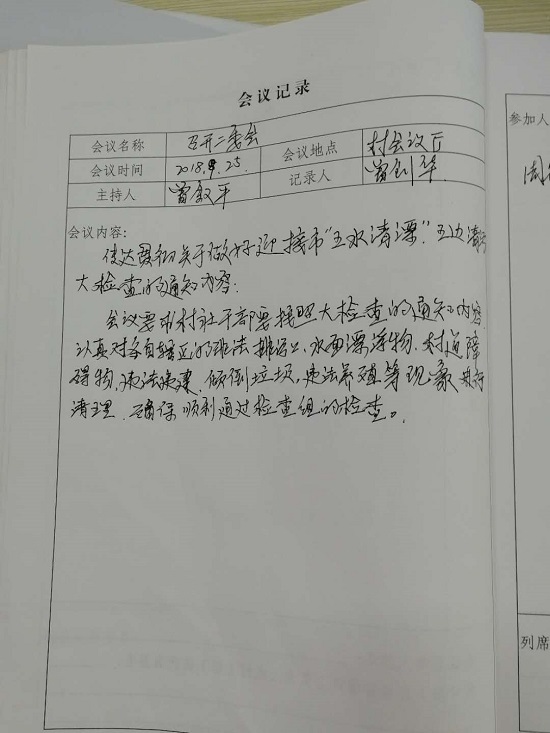 会议记录
会议名称 召开二委会 会议地点 村会议厅
会议时间 2018.9.25 记录人 曾
主持人 曾叙平
会议内容:
传达贯彻关于做好迎接市"五水清漂"五边清
大检查的通知内容:
会议要求村社干部要按照大检查的通知内容
认真对各自辖区的非法排污口、水面漂浮物、村道障
碍物、违法建、倾倒垃圾、违法养殖等现象进行
清理,确保顺利通过检查组的检查。
参加人
周
列席